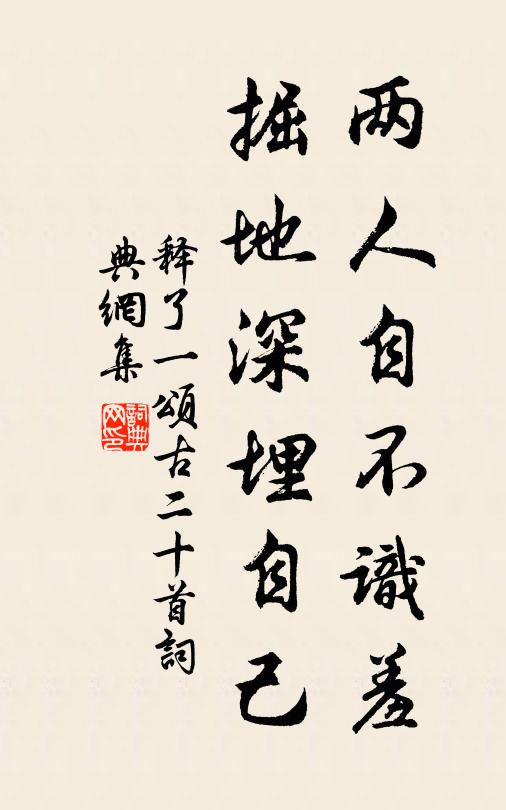 两人自不識羞
掘地深埋自己
释了一頌古二十首詞
典網集
詞典
网印